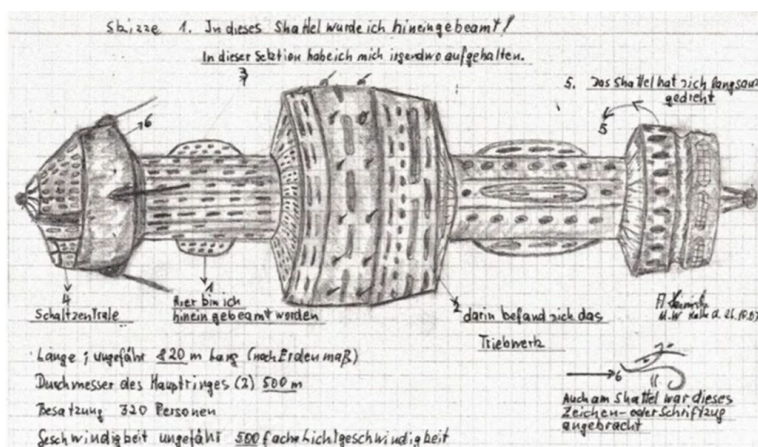 Skizze 1. In dieses Shattel wurde ich hineingebeamt!
In dieser Sektion habe ich mich irgendwo aufgehalten.
3
5. Das Shattel hat sich langsam
gedreht
5
6
4
Schaltzentrale
1
Hier bin ich
hineingebeamt worden
2
darin befand sich das
Triebwerk
Länge; ungefähr 820 m lang (nach Erdenmaß)
Durchmesser des Hauptringes (2) 500 m
Besatzung 320 Personen
Geschwindigkeit ungefähr 500 fache Lichtgeschwindigkeit
6
Auch am Shattel war dieses
Zeichen- oder Schriftzug
angebracht